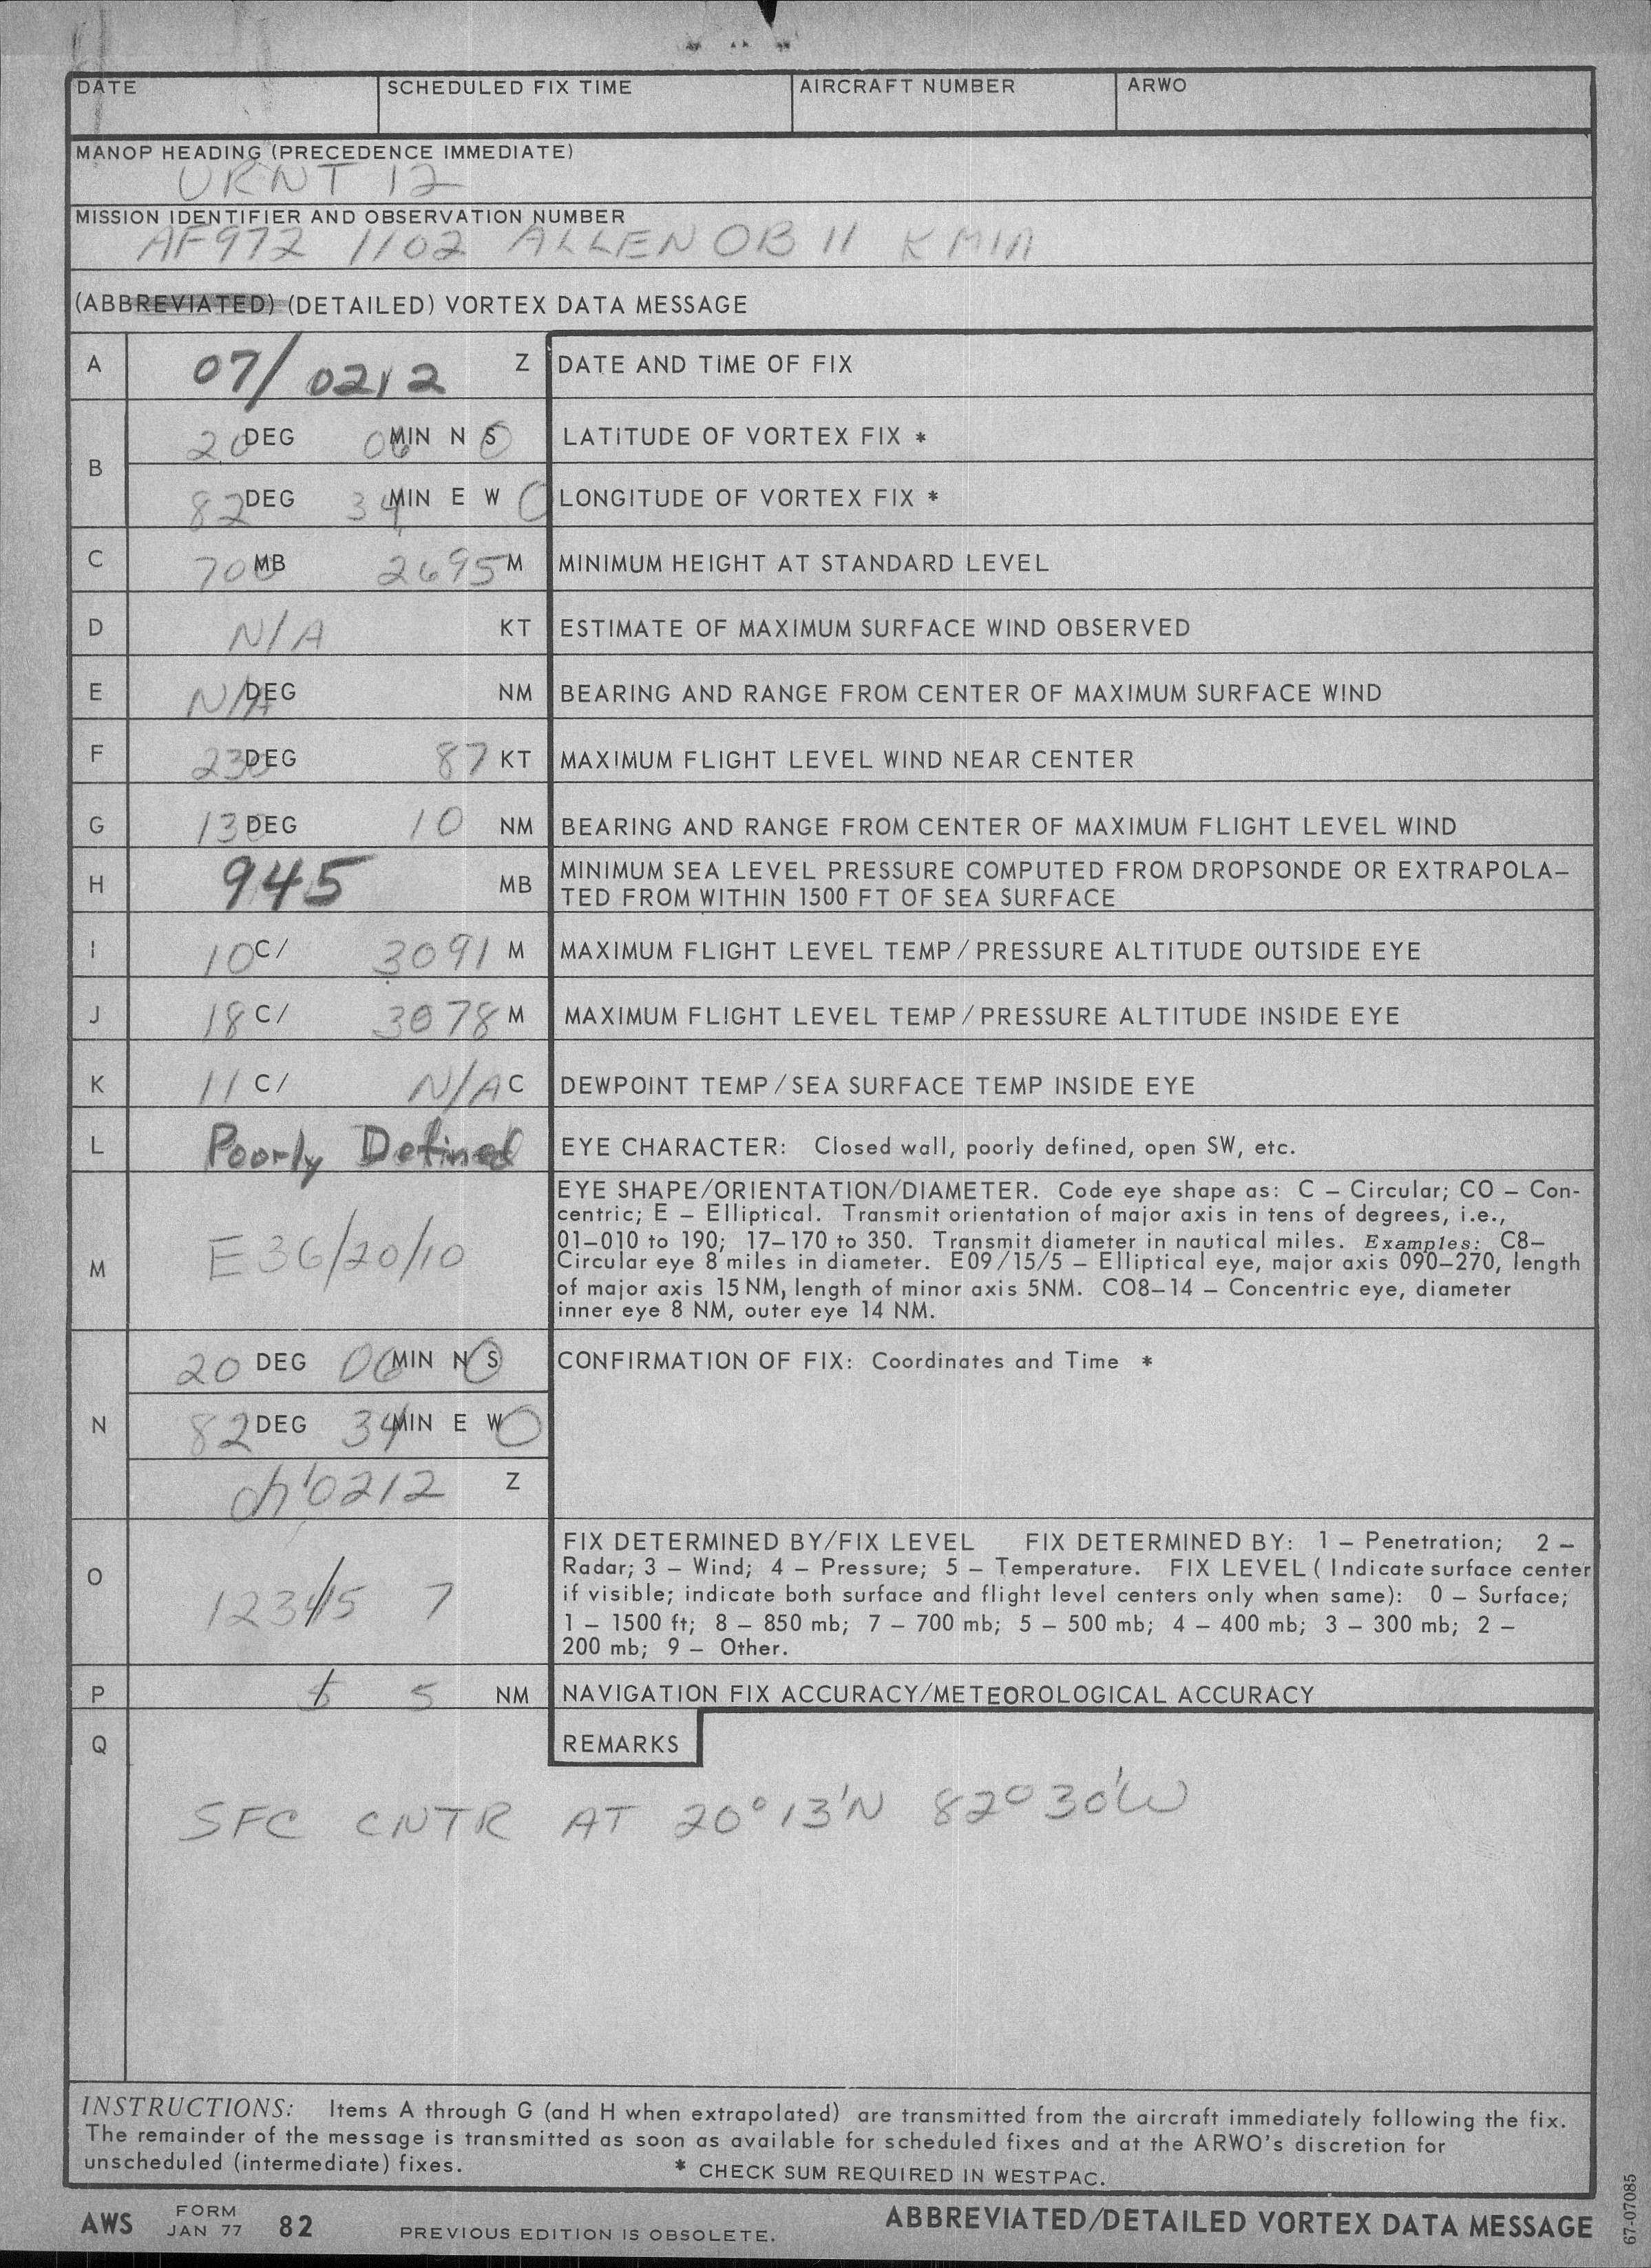 DATE SCHEDULED FIX TIME AIRCRAFT NUMBER ARWO
MANOP HEADING (PRECEDENCE IMMEDIATE)
URNT 12
MISSION IDENTIFIER AND OBSERVATION NUMBER
AF972 1102 ALLEN OB 11 KMIA
(ABBREVIATED) (DETAILED) VORTEX DATA MESSAGE
A 07/0212 Z DATE AND TIME OF FIX
B 20 DEG 06 MIN N S LATITUDE OF VORTEX FIX *
82 DEG 34 MIN E W LONGITUDE OF VORTEX FIX *
C 700 MB 2695 M MINIMUM HEIGHT AT STANDARD LEVEL
D N/A KT ESTIMATE OF MAXIMUM SURFACE WIND OBSERVED
E N/A DEG NM BEARING AND RANGE FROM CENTER OF MAXIMUM SURFACE WIND
F 230 DEG 87 KT MAXIMUM FLIGHT LEVEL WIND NEAR CENTER
G 13 DEG 10 NM BEARING AND RANGE FROM CENTER OF MAXIMUM FLIGHT LEVEL WIND
H 945 MB MINIMUM SEA LEVEL PRESSURE COMPUTED FROM DROPSONDE OR EXTRAPOLA–
TED FROM WITHIN 1500 FT OF SEA SURFACE
I 10 C/ 3091 M MAXIMUM FLIGHT LEVEL TEMP/PRESSURE ALTITUDE OUTSIDE EYE
J 18 C/ 3078 M MAXIMUM FLIGHT LEVEL TEMP/PRESSURE ALTITUDE INSIDE EYE
K 11 C/ N/A C DEWPOINT TEMP/SEA SURFACE TEMP INSIDE EYE
L Poorly Defined EYE CHARACTER: Closed wall, poorly defined, open SW, etc.
M E36/20/10 EYE SHAPE/ORIENTATION/DIAMETER. Code eye shape as: C – Circular; CO – Con-
centric; E – Elliptical. Transmit orientation of major axis in tens of degrees, i.e.,
01–010 to 190; 17–170 to 350. Transmit diameter in nautical miles. Examples: C8–
Circular eye 8 miles in diameter. E09/15/5 – Elliptical eye, major axis 090–270, length
of major axis 15 NM, length of minor axis 5NM. CO8–14 – Concentric eye, diameter
inner eye 8 NM, outer eye 14 NM.
N 20 DEG 06 MIN N S CONFIRMATION OF FIX: Coordinates and Time *
82 DEG 34 MIN E W
0212 Z
O 12345 7 FIX DETERMINED BY/FIX LEVEL FIX DETERMINED BY: 1 – Penetration; 2 –
Radar; 3 – Wind; 4 – Pressure; 5 – Temperature. FIX LEVEL (Indicate surface center
if visible; indicate both surface and flight level centers only when same): 0 – Surface;
1 – 1500 ft; 8 – 850 mb; 7 – 700 mb; 5 – 500 mb; 4 – 400 mb; 3 – 300 mb; 2 –
200 mb; 9 – Other.
P 5 NM NAVIGATION FIX ACCURACY/METEOROLOGICAL ACCURACY
Q REMARKS
SFC CNTR AT 20°13'N 82°30'W
INSTRUCTIONS: Items A through G (and H when extrapolated) are transmitted from the aircraft immediately following the fix.
The remainder of the message is transmitted as soon as available for scheduled fixes and at the ARWO's discretion for
unscheduled (intermediate) fixes. * CHECK SUM REQUIRED IN WESTPAC.
AWS FORM JAN 77 82 PREVIOUS EDITION IS OBSOLETE. ABBREVIATED/DETAILED VORTEX DATA MESSAGE
67-07085